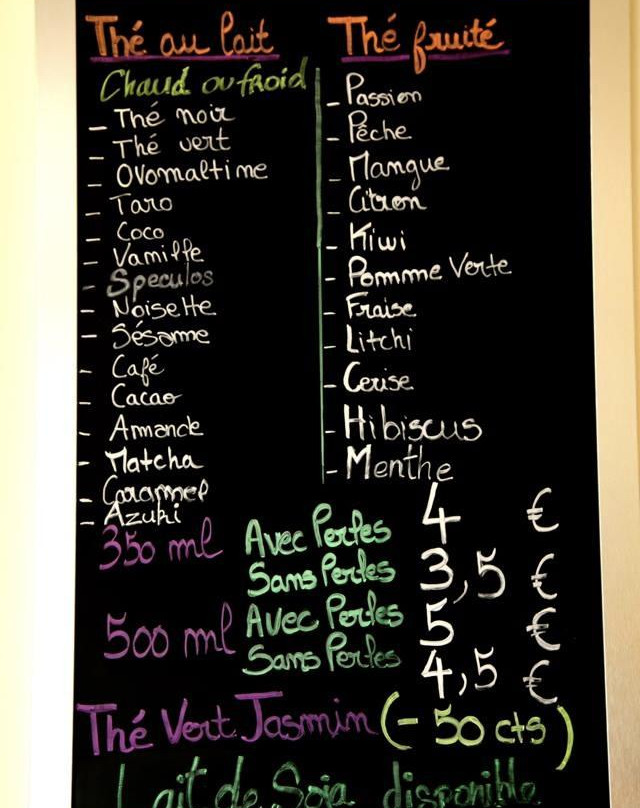 Thé au lait
Chaud ou froid
- Thé noir
- Thé vert
- Ovomaltime
- Taro
- Coco
- Vanille
- Speculos
- Noisette
- Sésame
- Café
- Cacao
- Amande
- Matcha
- Caramel
- Azuki
Thé fruité
- Passion
- Pêche
- Mangue
- Citron
- Kiwi
- Pomme Verte
- Fraise
- Litchi
- Cerise
- Hibiscus
- Menthe
350 ml Avec Perles 4 €
Sans Perles 3,5 €
500 ml Avec Perles 5 €
Sans Perles 4,5 €
Thé Vert Jasmin (- 50 cts)
Lait de Soja disponible